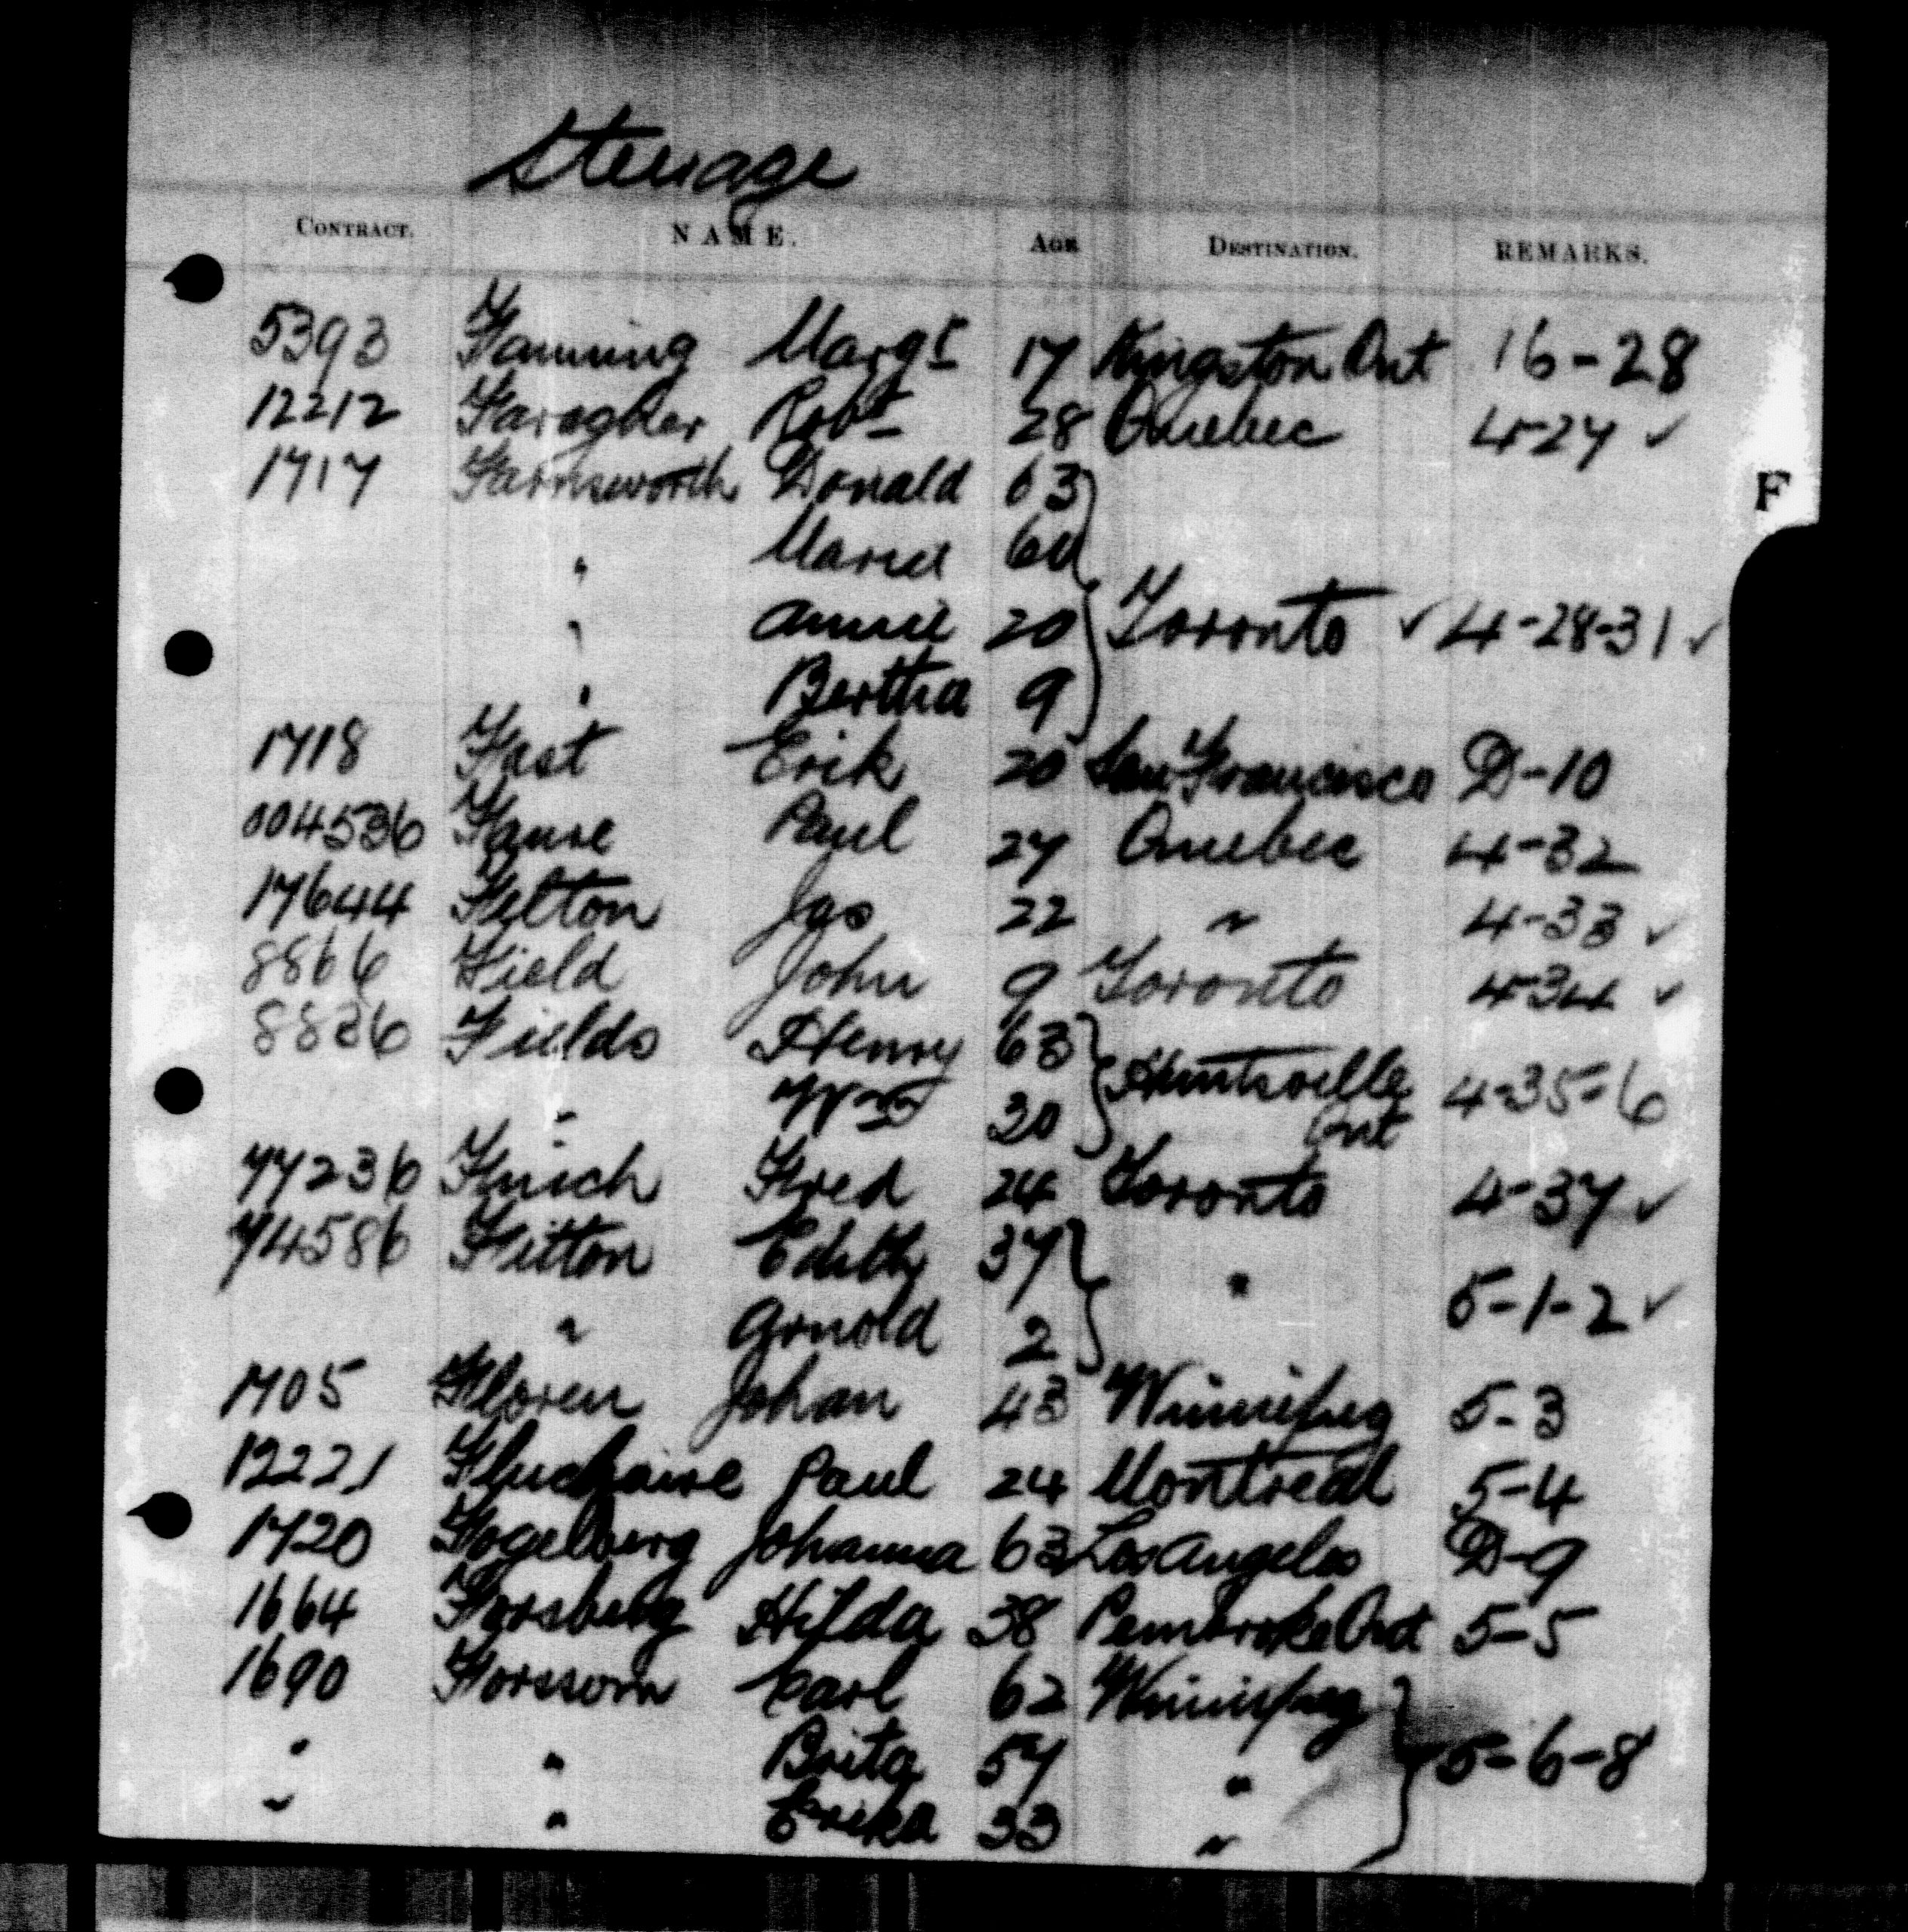 Steerage
CONTRACT. NAME. AGE DESTINATION. REMARKS.
5393 Fanning Margt 17 Kingston Ont 16-28
12212 Faragher Robt 28 Quebec 4-27 ✓
1717 Farnsworth Donald 63
" Maria 60
" Annie 20 Toronto ✓ 4-28-31 ✓
" Bertha 9
F
1718 Fast Erik 20 San Francisco D-10
004536 Faure Paul 27 Quebec 4-32
17644 Felton Jas 22 " 4-33 ✓
8866 Field John 9 Toronto 4-34 ✓
8836 Fields Henry 63 Huntsville Ont 4-35-6
" Wm 30
77236 Finch Fred 24 Toronto 4-37 ✓
74586 Fitton Edith 37 " 5-1-2 ✓
" Arnold 2
1705 Floren Johan 43 Winnipeg 5-3
12221 Paul 24 Montreal 5-4
1720 Fogelberg Johanna 63 Los Angelos D-9
1664 Forsberg Hilda 38 Pembroke Ont 5-5
1690 Forssom Carl 62 Winnipeg
" " Brita 57 " 5-6-8
" " Erika 33 "